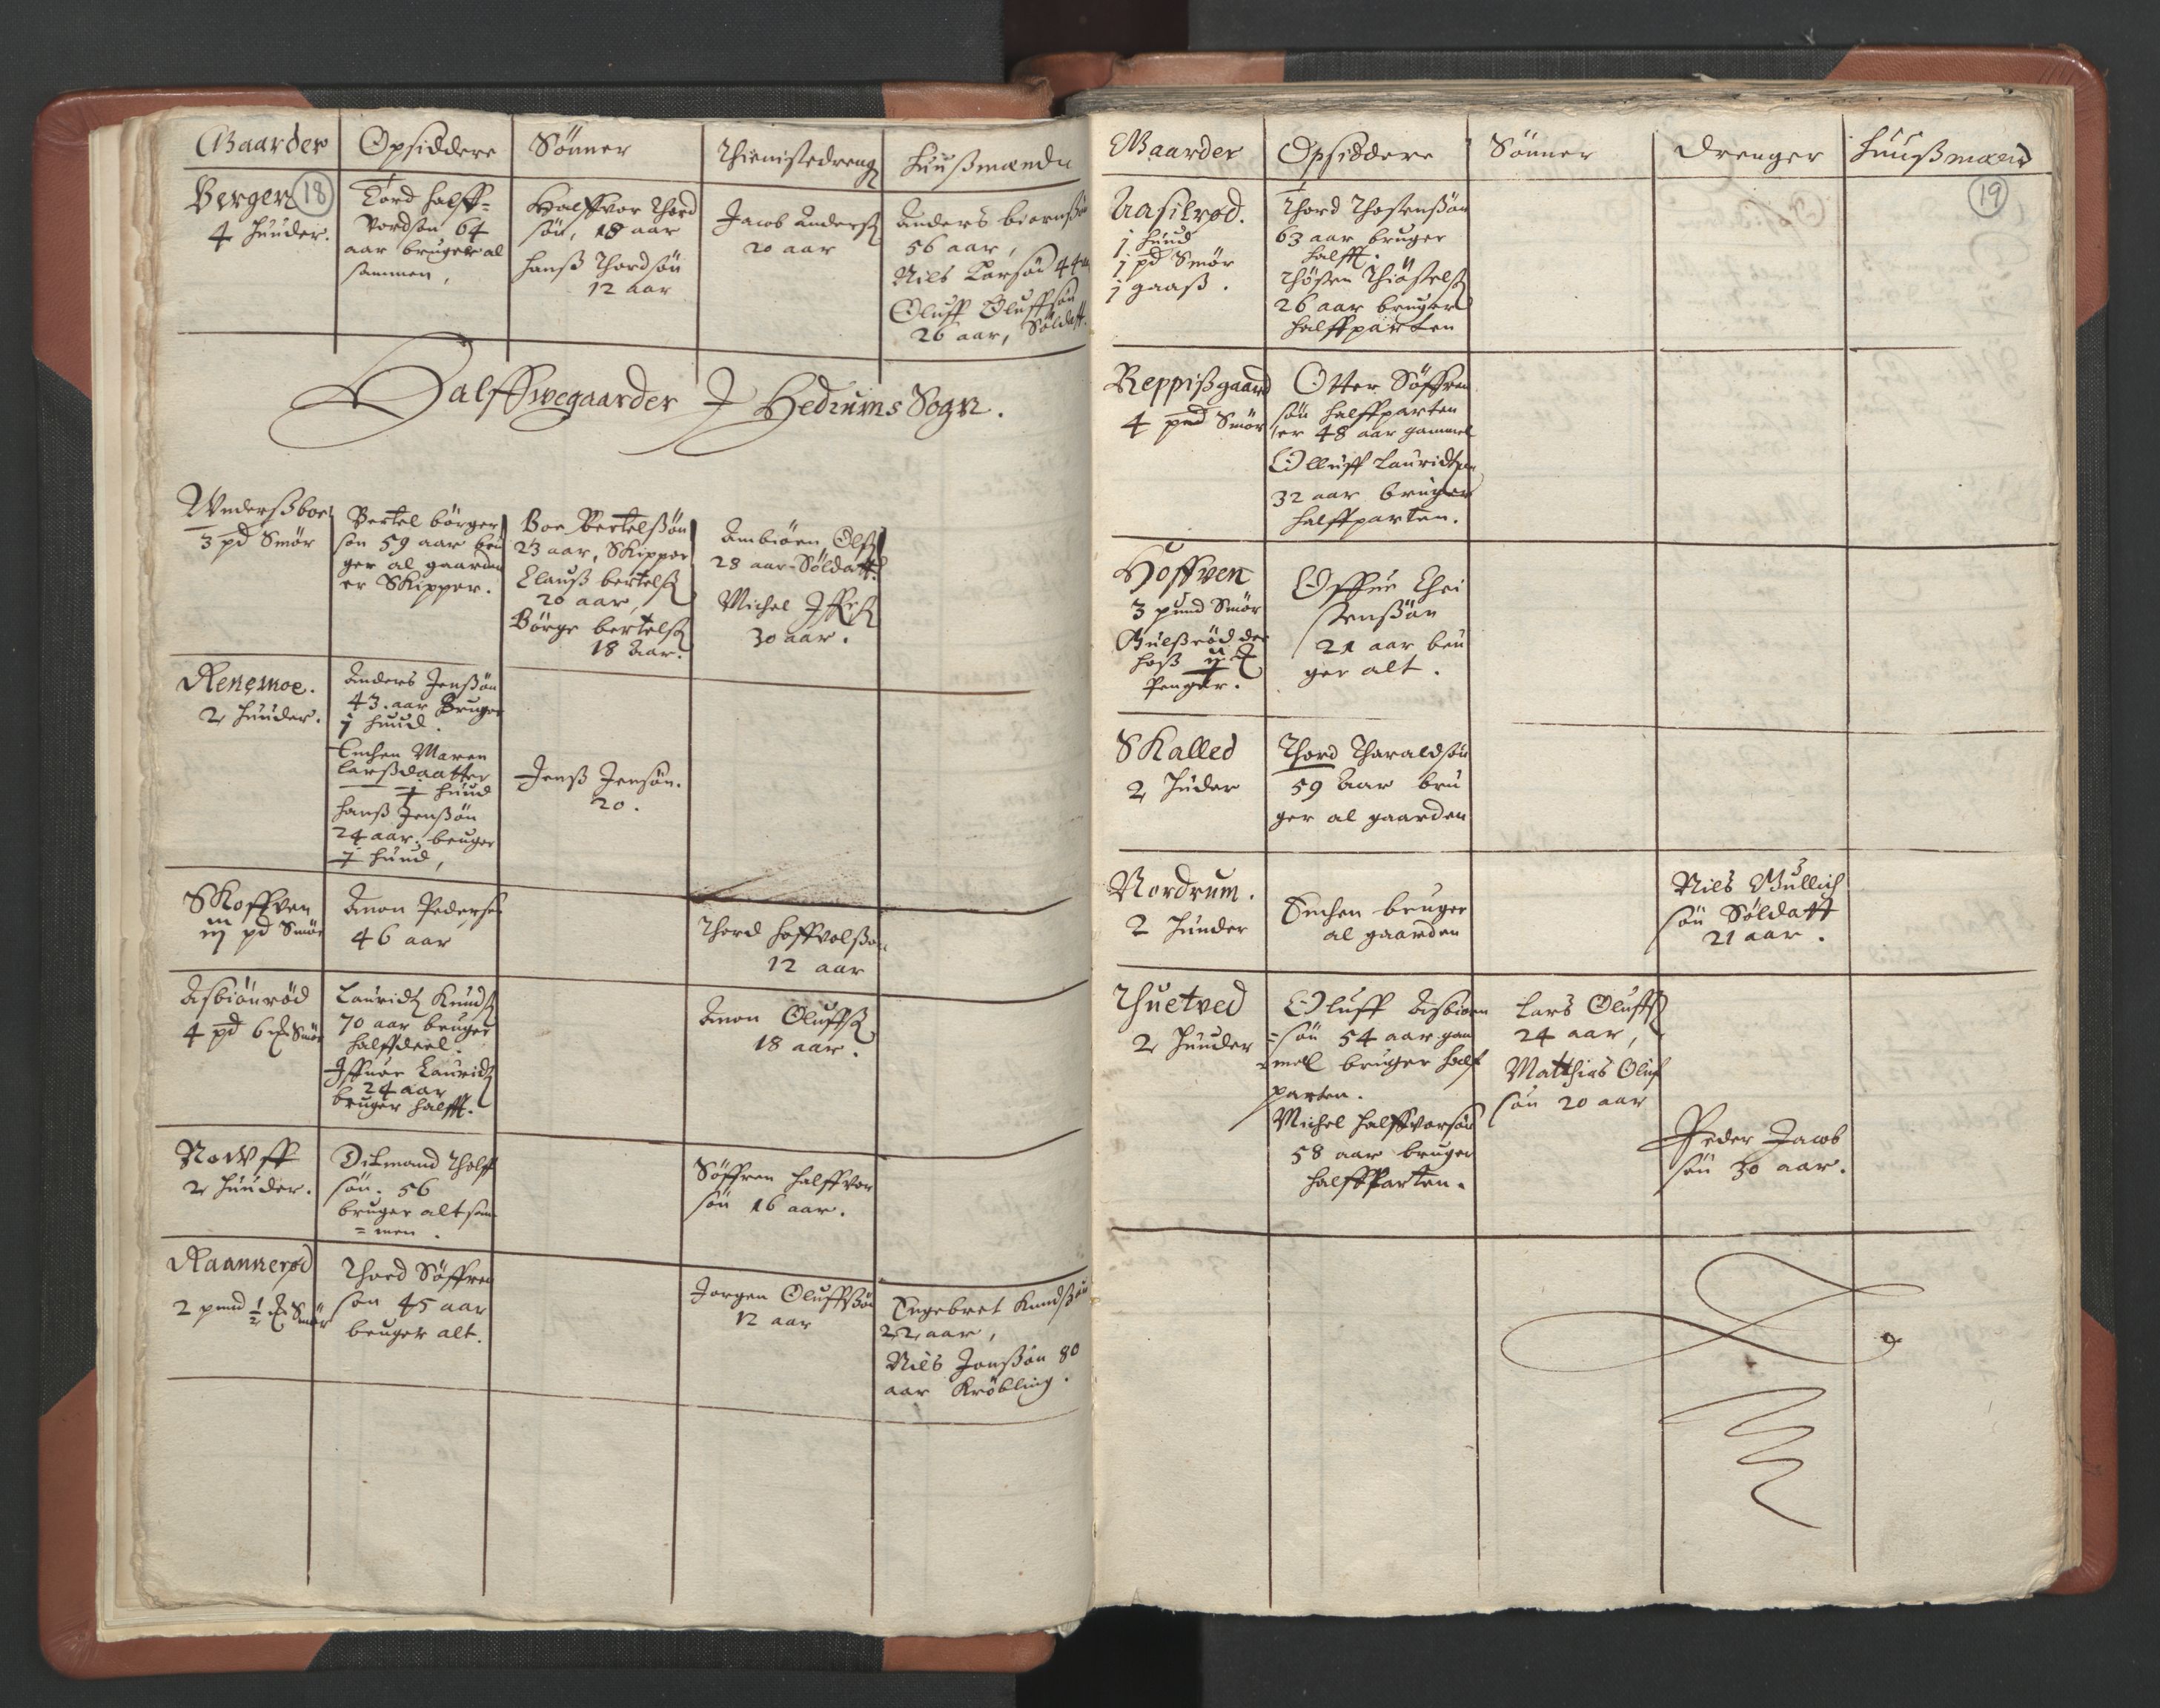 Gaarder
Opsiddere
Sönner
Thienistedreng
Huußmænd
18
Berger
4 huuder.
Tord Half=
vordsön 64
aar bruger al
sammen,
Halffvor Thord
sön, 18 aar
Hanß Thordsön
12 aar
Jacob Anderß
20 aar
Anders biörnßön
56 aar,
Niels Larsön 44
Oluff Oluffsön
26 aar, Söldatt.
Halffwegaarder J Hedrums Sogn.
Underßboe
3 pd Smör
Bertel börger
sön 59 aar bru
ger al gaarden
er Skipper.
Boe Bertelßön
23 aar, Skipper
Clauß bertelß
20 aar,
Börge bertelß
18 aar.
Ambiörn Olß
28 aar. Söldatt.
Michel
30 aar.
Renemoe.
2 huuder.
Anders Jenßön
43. aar Bruger
1 huud.
Enchen Maren
Larßdaatter
huud
Hanß Jenßön
24 aar. bruger
huud,
Jenß Jensön.
20.
Skoffven
iij pd Smör
Amon Peders
46 aar
Thord Hoffvolßön
12 aar
Asbiönröd
4 pd 6 Smör
Lauridz Knudß
70 aar bruger
halffdeel.
Iffuer Lauridß
24 aar
bruger halfft.
Amon Oluffß
18 aar.
Nowff
2 huuder.
Ditmand Tholff
sön. 56
bruger alt sam
=men.
Söffren Halffvor
sön 16 aar.
Raannerød
2 pund ½ Smör
Thord Söffren
sön 45 aar
bruger alt.
Jørgen Oluffßön
12 aar
Engebret Knudßön
22 aar,
Niels Jonßön 80
aar Kröbling.
Gaarder
Opsiddere
Sönner
Drenger
Huußmænd
19
Aasilrød.
1 huud
1 pd Smör
1 gaaß.
Thord Thostenßön
63 aar bruger
halfft.
Thösten Thiöstelß
26 aar bruger
halffparten
Reppißgaard
4 pnd Smör
Otter Söffren
sön halffparten
er 48 aar gammel
Olluff Lauridtzen
32 aar bruger
halffparten.
Hoffven
3 pund Smör
Gulßröd der
hoß
Penger.
Offue Chri
stenßön
21 aar bru
ger alt.
Skalled
2 huder
Thord Tharaldsön
59 aar bru
ger al gaarden
Nordrum.
2 huuder
Enchen bruger
al gaarden
Niels Gullich
sön Söldatt
21 aar.
Thuetved
2 huuder
Oluff Asbiörn
=sön 54 aar gam
mel bruger half
parten.
Michel Halffvorsön
58 aar bruger
halffparten.
Lars Oluffß
24 aar,
Matthias Oluf
sön 20 aar
Peder Jacob
sön 30 aar.